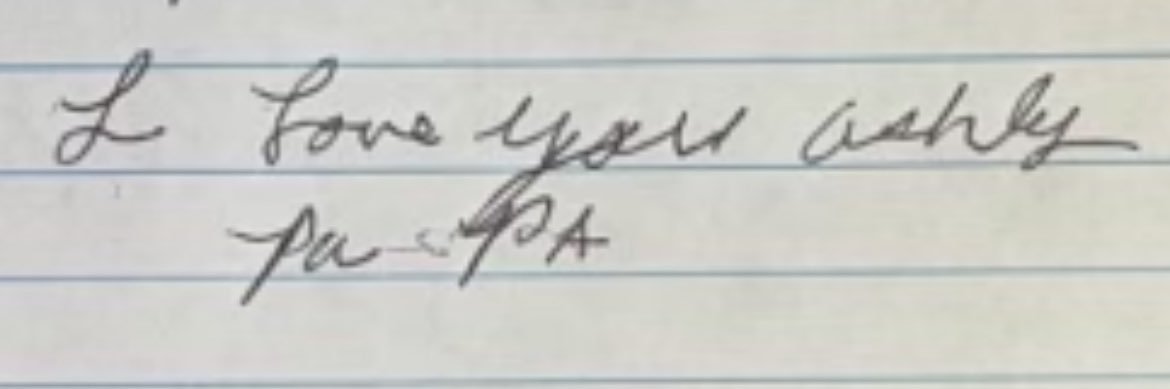 I Love you ashly
Pa-PA